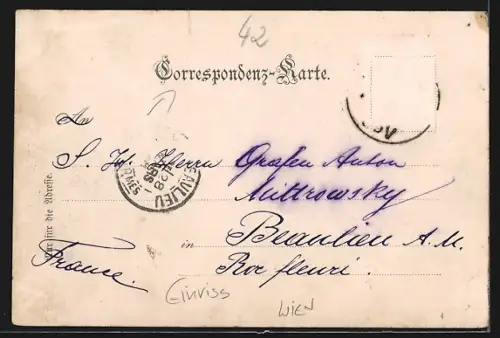 42
Correspondenz-Karte.
An
S. H. Herrn Grafen Anton
Mittrowsky
in Beaulieu A. M.
Roc fleuri.
France.
Nur für die Adresse.
BEAULIEU
Einriss
WIEN